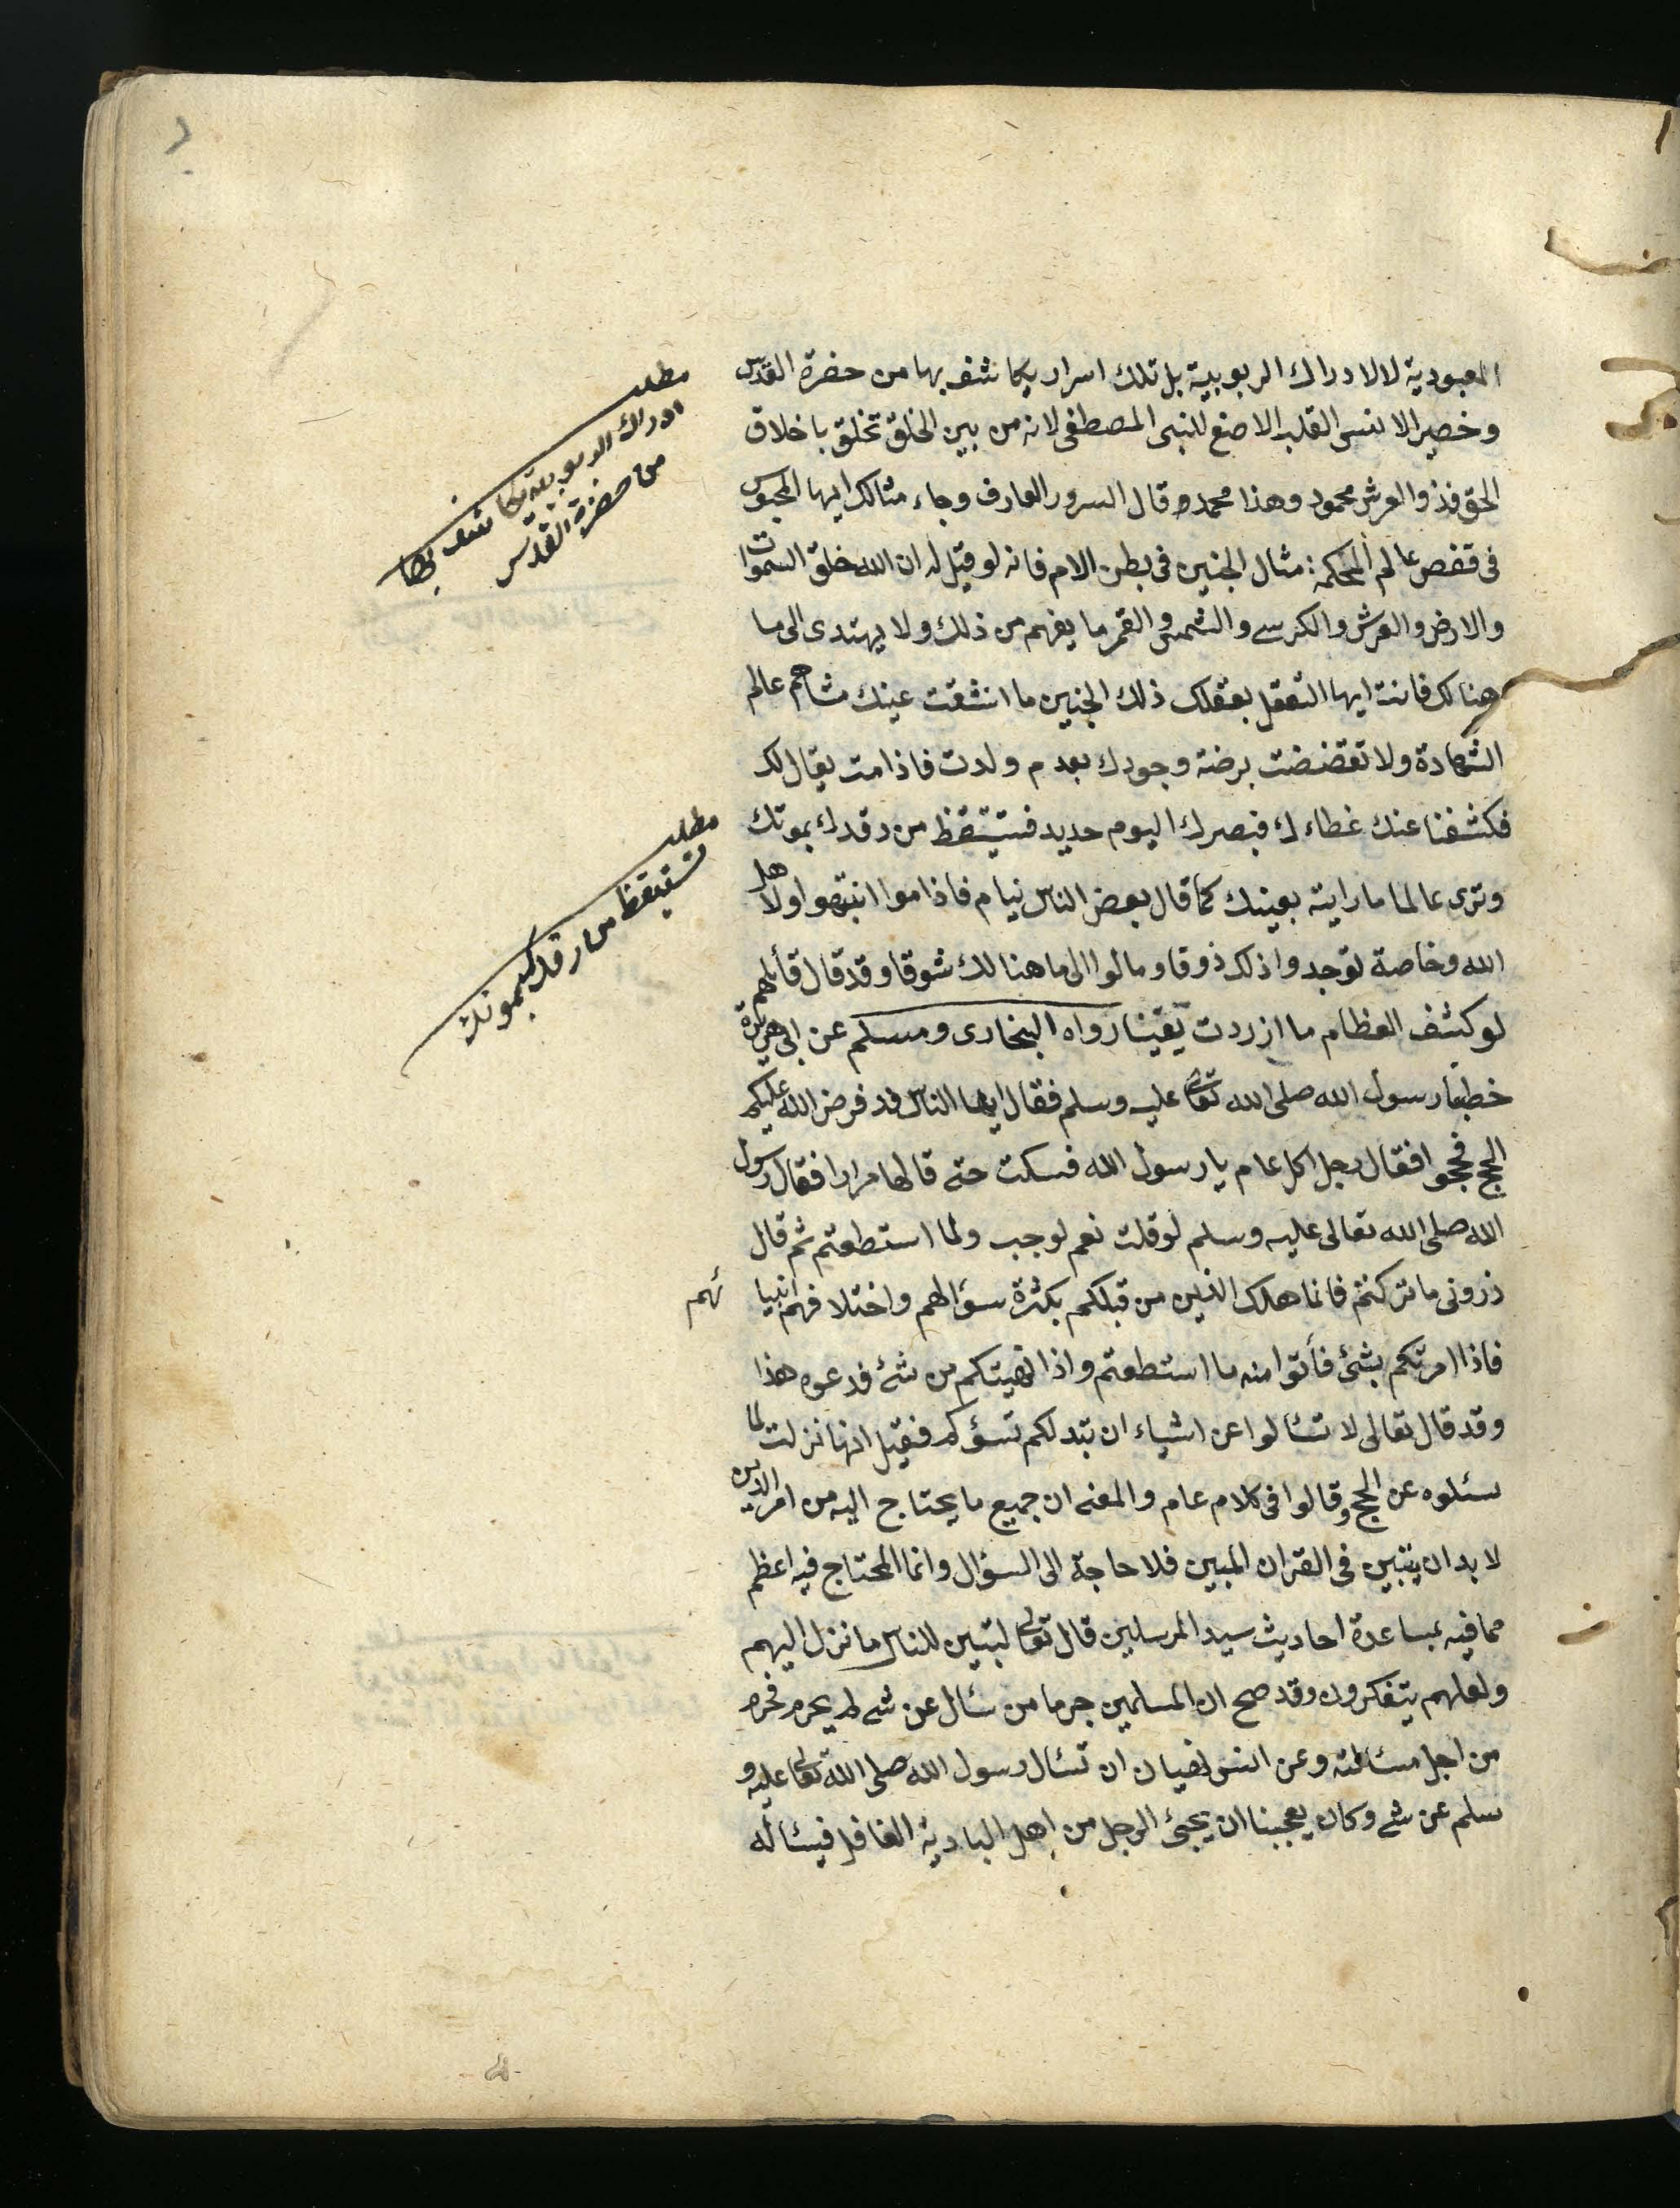 المعبودية لا لادراك الربوبية بل تلك اسرار يكاشف بها من حضرة القدس
وخصير الانسى القلب الاصنع للنبى المصطفى لانه من بين الخلق تخلق باخلاق
الحق فذو العرش محمود وهذا محمد وقال السرور العارف وجاء مثالك ايها المحبوس
فى قفص عالم الحكمة مثال الجنين فى بطن الام فانه لو قيل له ان الله خلق السموات
والارض والعرش والكرسى والشمس والقمر ما يفهم من ذلك ولا يهتدى الى ما
هنالك فانت ايها التعقل بعقلك ذلك الجنين ما انشقت عينك مشاهم عالم
الشهادة ولا تقضضت برضة وجودك بعدم ولدت فاذا مت يقال لك
فكشفنا عنك غطاءك فبصرك اليوم حديد فستيقظ من رقدك بموتك
وترى عالما ما رايته بعينك كما قال بعض الناس نيام فاذا موا انتبهوا ولاهل
الله وخاصة توجد واذلك ذوقا ومالوا الى ما هنالك شوقا وقد قال قائلهم
لو كشف الغطا م ما ازردت يقينا رواه البخارى ومسلم عن ابى هريرة
خطبنا رسول الله صلى الله تعالى عليه وسلم فقال ايها الناس قد فرض الله عليكم
الحج فحجوا فقال رجل اكل عام يا رسول الله فسكت حتى قالها مرارا فقال رسول
الله صلى الله تعالى عليه وسلم لو قلت نعم لوجب ولما استطعتم ثم قال
ذرونى ما تركتم فانما هلك الذين من قبلكم بكثرة سؤالهم واختلافهم انبيا ئهم
فاذا امرتكم بشئ فأتوا منه ما استطعتم واذا نهيتكم من شئ فدعوه هذا
وقد قال تعالى لا تسئالوا عن اشياء ان تبد لكم تسؤكم فقيل انها نزلت لما
سئلوه عن الحج وقالوا فى كلام عام والمعنى ان جميع ما يحتاج اليه من امر الدين
لا بد ان يتبين فى القران المبين فلا حاجة الى السؤال وانما المحتاج فيه اعظم
مما فيه بمساعدة احاديث سيد المرسلين قال تعالى لتبين للناس ما نزل اليهم
ولعلهم يتفكرون وقد صح ان المسلمين جرما من سئال عن شى لم يحرم فحرم
من اجل مسئالته وعن انس نهيان ان تسئال رسول الله صلى الله تعالى عليه و
سلم عن شى وكان يعجبنا ان يجئ الرجل من اهل البادية الغافل فيسئاله
مطلب
ادراك الربوبية يكاشف بها
من حضرة القدس
مطلب
تستيقظ من رقدك بموتك